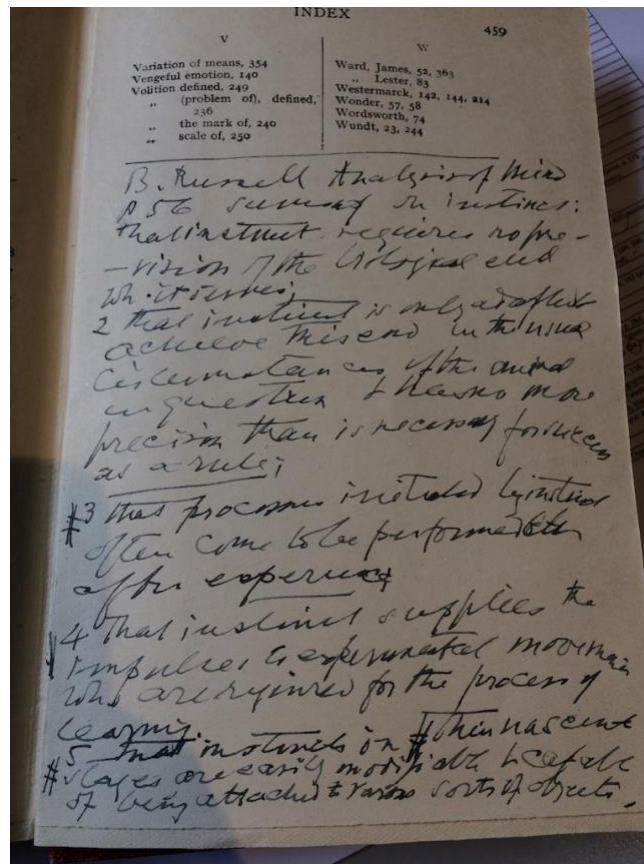 INDEX
459
V
Variation of means, 354
Vengeful emotion, 140
Volition defined, 249
" (problem of), defined,
236
" the mark of, 240
" scale of, 250
W
Ward, James, 52, 363
" Lester, 83
Westermarck, 142, 144, 214
Wonder, 57, 58
Wordsworth, 74
Wundt, 23, 244
B. Russell Analysis of Mind
p 56 summary on instinct:
that instinct requires no pre-
-vision of the biological end
wh. it serves.
2 that instinct is only adapted
achieve this end in the usual
circumstances of the animal
in question & has no more
precision than is necessary for success
as a rule;
#3 that processes initiated by instinct
often come to be performed better
after experience
4 that instinct supplies the
impulses to experimental movements
wh. are required for the process of
learning.
5 that instincts in # their nascent
# stages are easily modifiable & capable
of being attached to various sorts of objects.